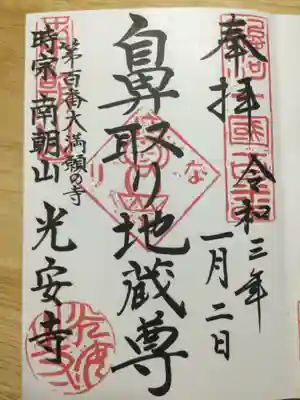 奉拝
令和三年
一月二日
鼻取り地蔵尊
第百番大満願の寺
時宗 南朝山 光安寺